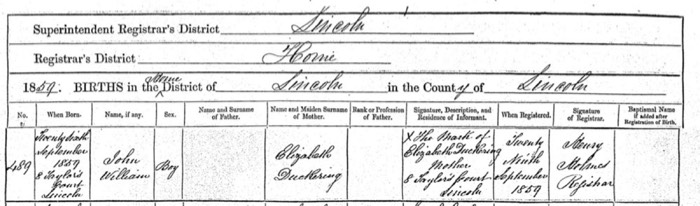 Superintendent Registrar's District Lincoln
Registrar's District Home
1859. BIRTHS in the Home District of Lincoln in the County of Lincoln
No. When Born. Name, if any. Sex. Name and Surname of Father. Name and Maiden Surname of Mother. Rank or Profession of Father. Signature, Description, and Residence of Informant. When Registered. Signature of Registrar. Baptismal Name if added after Registration of Birth.
489
September
1859
8 Taylor's
Court
Lincoln
John
William
Boy
Elizabeth
Duckering
X The Mark of
Elizabeth Duckering
Mother
8 Taylor's Court
Lincoln
Twenty
Ninth
September
1859
Henry
Holmes
Registrar